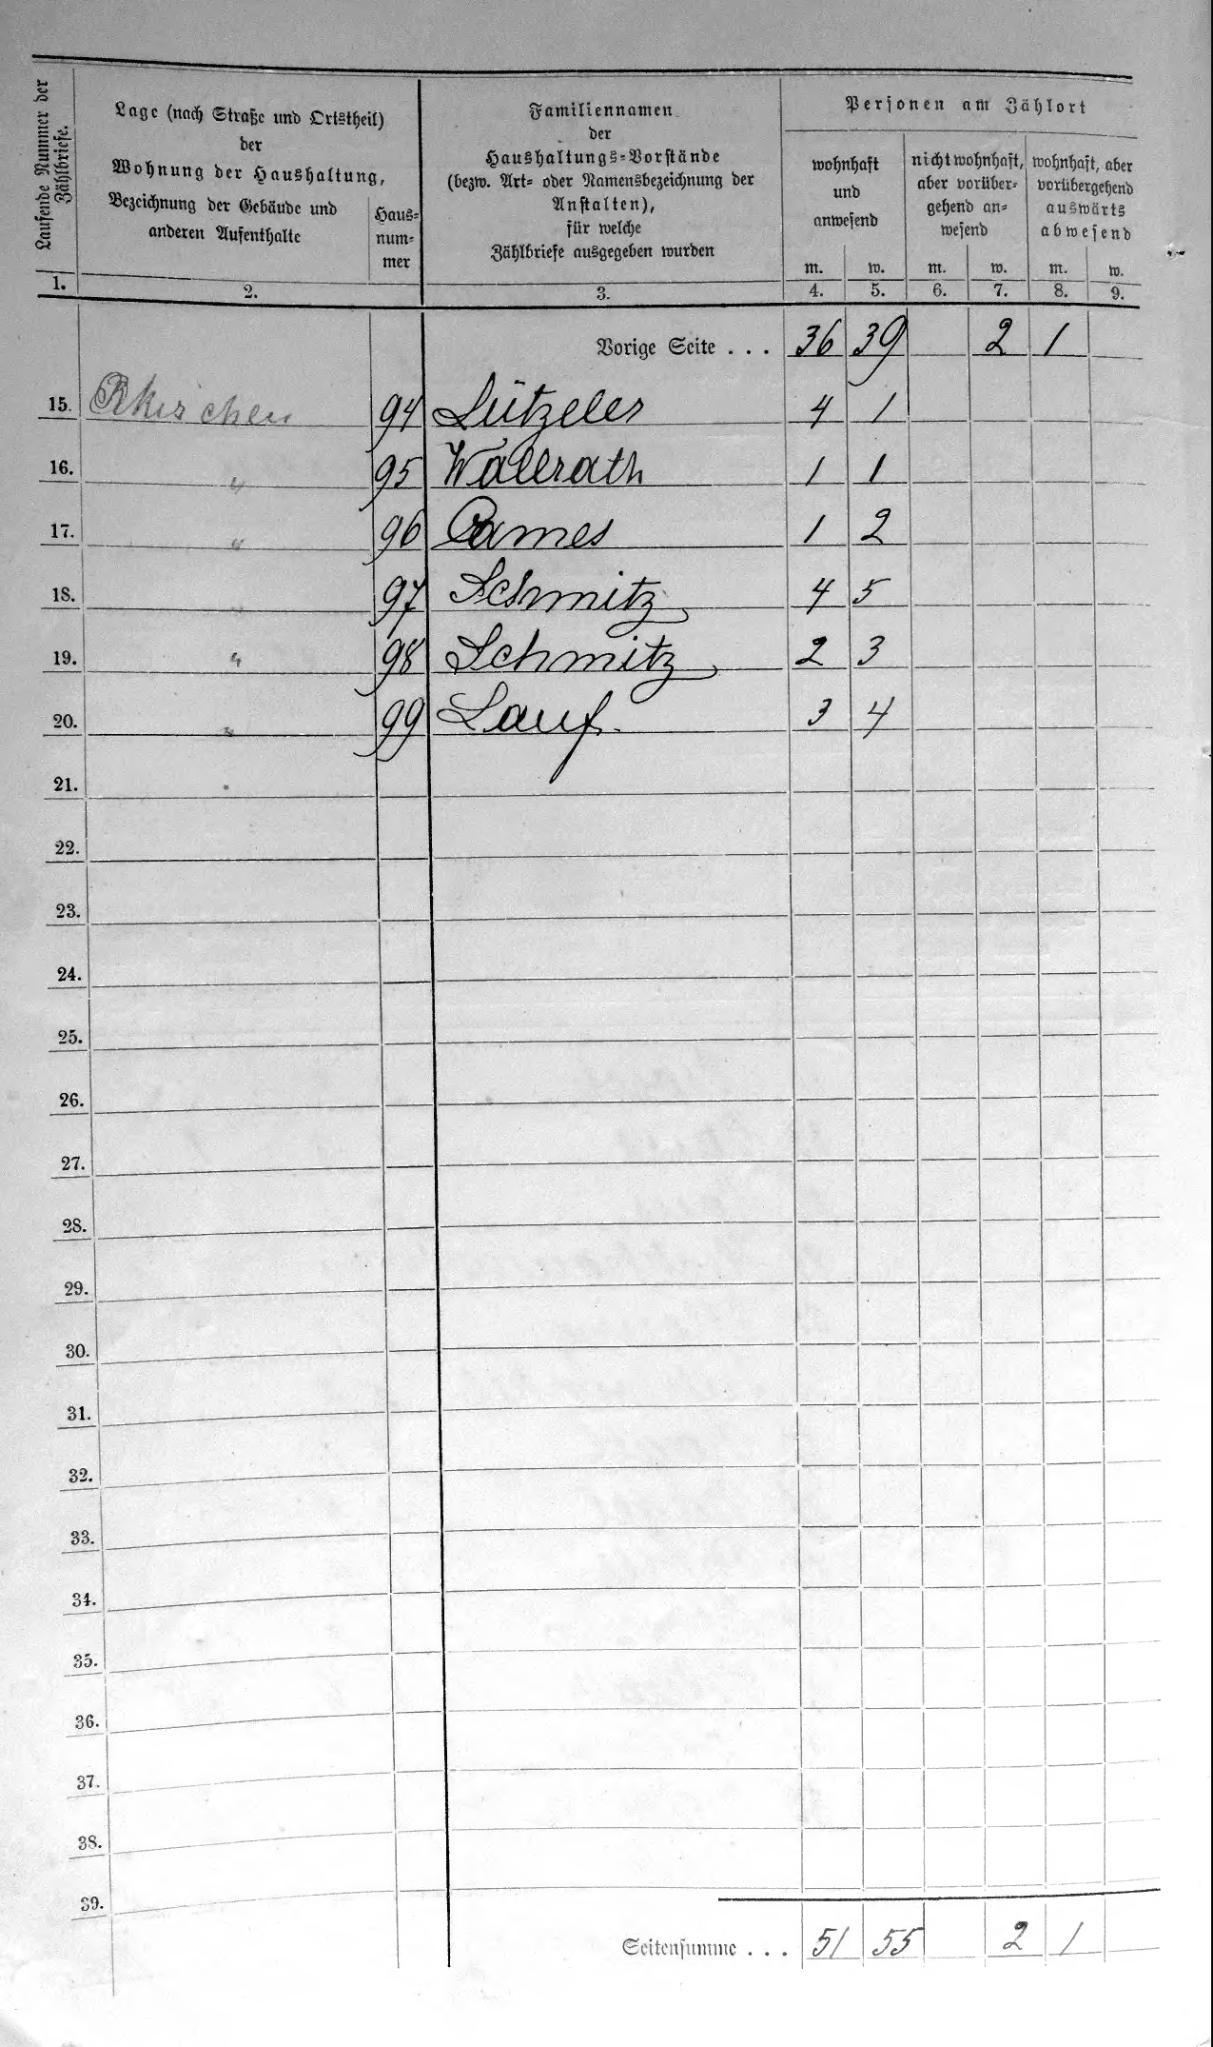 Laufende Nummer der
Zählbriefe.
Lage (nach Straße und Ortstheil)
der
Wohnung der Haushaltung,
Bezeichnung der Gebäude und
anderen Aufenthalte
Haus-
num-
mer
Familiennamen
der
Haushaltungs-Vorstände
(bezw. Art- oder Namensbezeichnung der
Anstalten),
für welche
Zählbriefe ausgegeben wurden
Personen am Zählort
wohnhaft
und
anwesend
nicht wohnhaft,
aber vorüber-
gehend an-
wesend
wohnhaft, aber
vorübergehend
auswärts
abwesend
m. w. m. w. m. w.
1. 2. 3. 4. 5. 6. 7. 8. 9.
Vorige Seite . . . 36 39 2 1
15. 94 Lützeler 4 1
16. " 95 Wallrath 1 1
17. " 96 2
18. " 97 Schmitz 4 5
19. " 98 Schmitz 2 3
20. " 99 Lauf. 3 4
21.
22.
23.
24.
25.
26.
27.
28.
29.
30.
31.
32.
33.
34.
35.
36.
37.
38.
39.
Seitensumme . . . 51 55 2 1